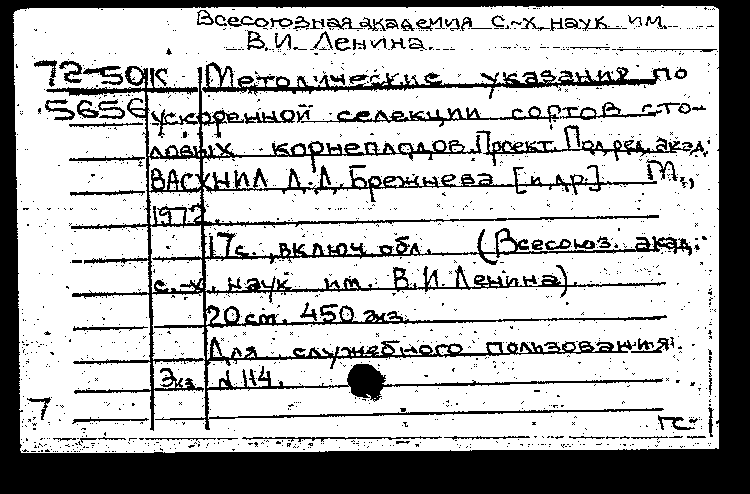 Всесоюзная академия с.-х. наук им.
В.И. Ленина.
72-50К Методические указания по
5656 ускоренной селекции сортов сто-
ловых корнеплодов. Проект. Под ред. акад.
ВАСХНИЛ Д.Д. Брежнева [и др.] М.,
1972.
17с., включ. обл. (Всесоюз. акад.
с.-х. наук им. В.И. Ленина).
20 см. 450 экз.
Для служебного пользования.
Экз. N 114.
7
ГС-